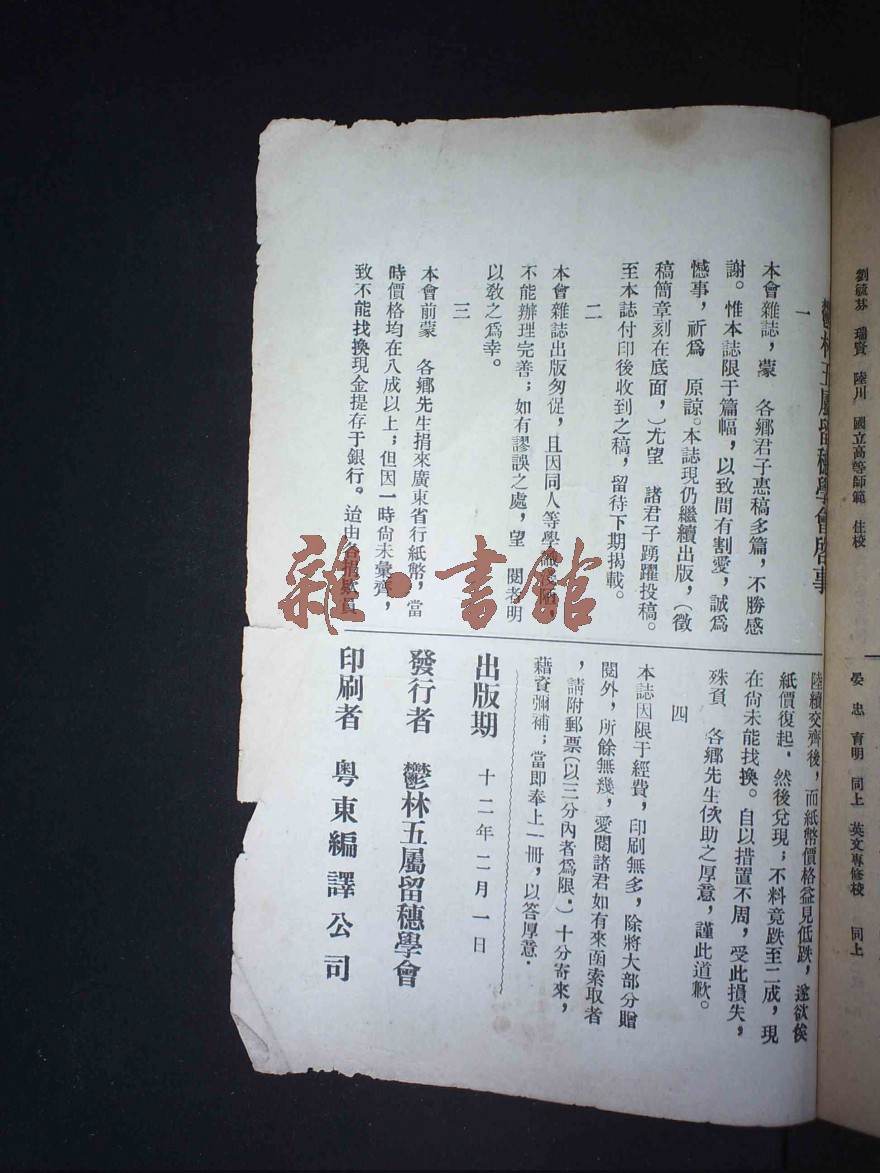 劉毓芬　瑞賢　陸川　國立高等師範　住校
晏　忠　育明　同上　英文專修校　同上
鬱林五屬留穗學會啓事
一
本會雜誌，蒙　各鄉君子惠稿多篇，不勝感
謝。惟本誌限于篇幅，以致間有割愛，誠爲
憾事，祈爲　原諒。本誌現仍繼續出版，（徵
稿簡章刻在底面，）尤望　諸君子踴躍投稿。
至本誌付印後收到之稿，留待下期揭載。
二
本會雜誌出版匆促，且因同人等學
不能辦理完善；如有謬誤之處，望　閱者明
以敎之爲幸。
三
本會前蒙　各鄉先生捐來廣東省行紙幣，當
時價格均在八成以上；但因一時尙未彙齊，
致不能找換現金提存于銀行。迨由各捐欵員
陸續交齊後，而紙幣價格益見低跌，遂欲俟
紙價復起，然後兌現；不料竟跌至二成，現
在尙未能找換。自以措置不周，受此損失，
殊負　各鄉先生佽助之厚意，謹此道歉。
四
本誌因限于經費，印刷無多，除將大部分贈
閱外，所餘無幾，愛閱諸君如有來函索取者
，請附郵票（以三分內者爲限。）十分寄來，
藉資彌補；當即奉上一冊，以答厚意．
出版期　十二年二月一日
發行者　鬱林五屬留穗學會
印刷者　粵東編譯公司
雜·書館